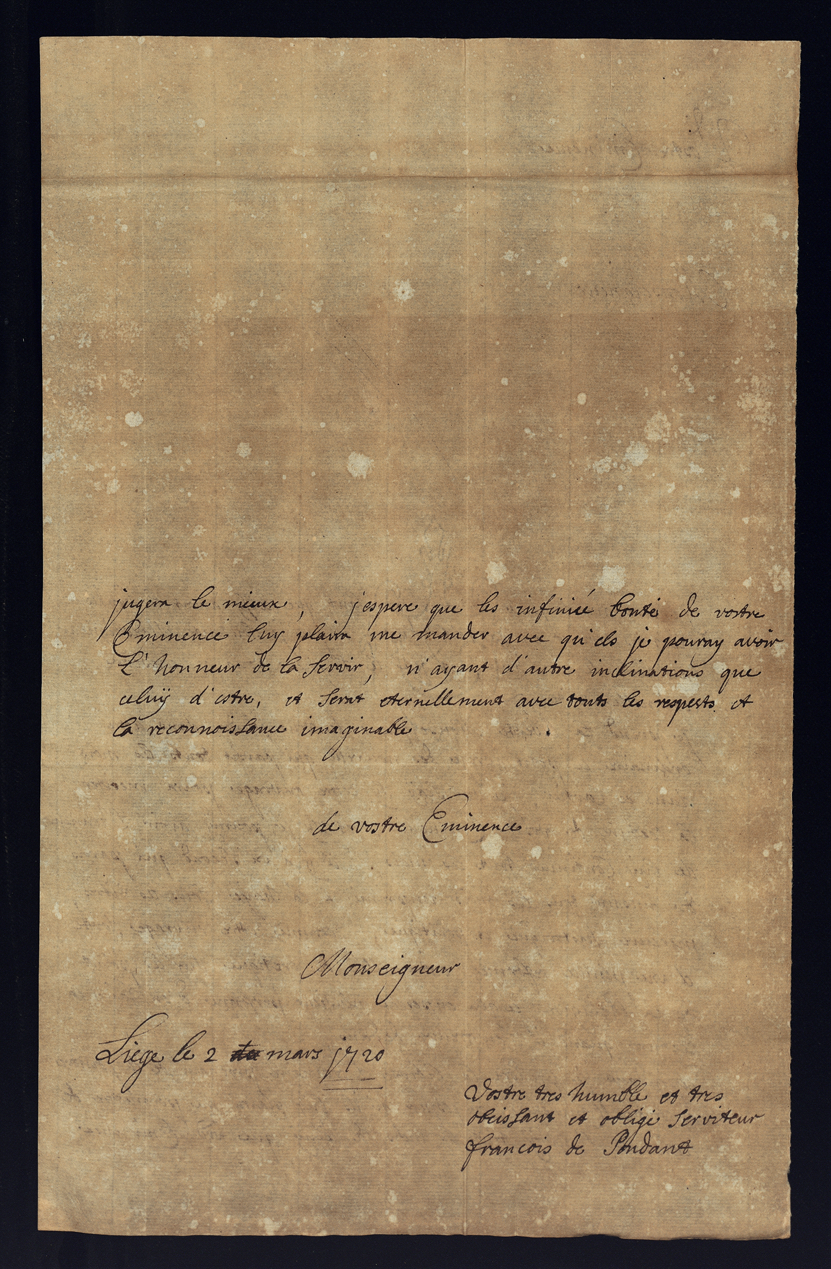 jugera le mieux, j'espere que les infinié bonté de vostre
Eminence luy plaira me mander avec qu'els je pouray avoir
L'honneur de la servir, n'ayant d'autre inclinations que
celuÿ d'estre, et serat eternellement avec touts les respects et
la reconnoissance imaginable
de vostre Eminence
Monseigneur
Liege le 2 mars 1720
Vostre tres humble et tres
obeissant et obligé serviteur
francois de Pondant